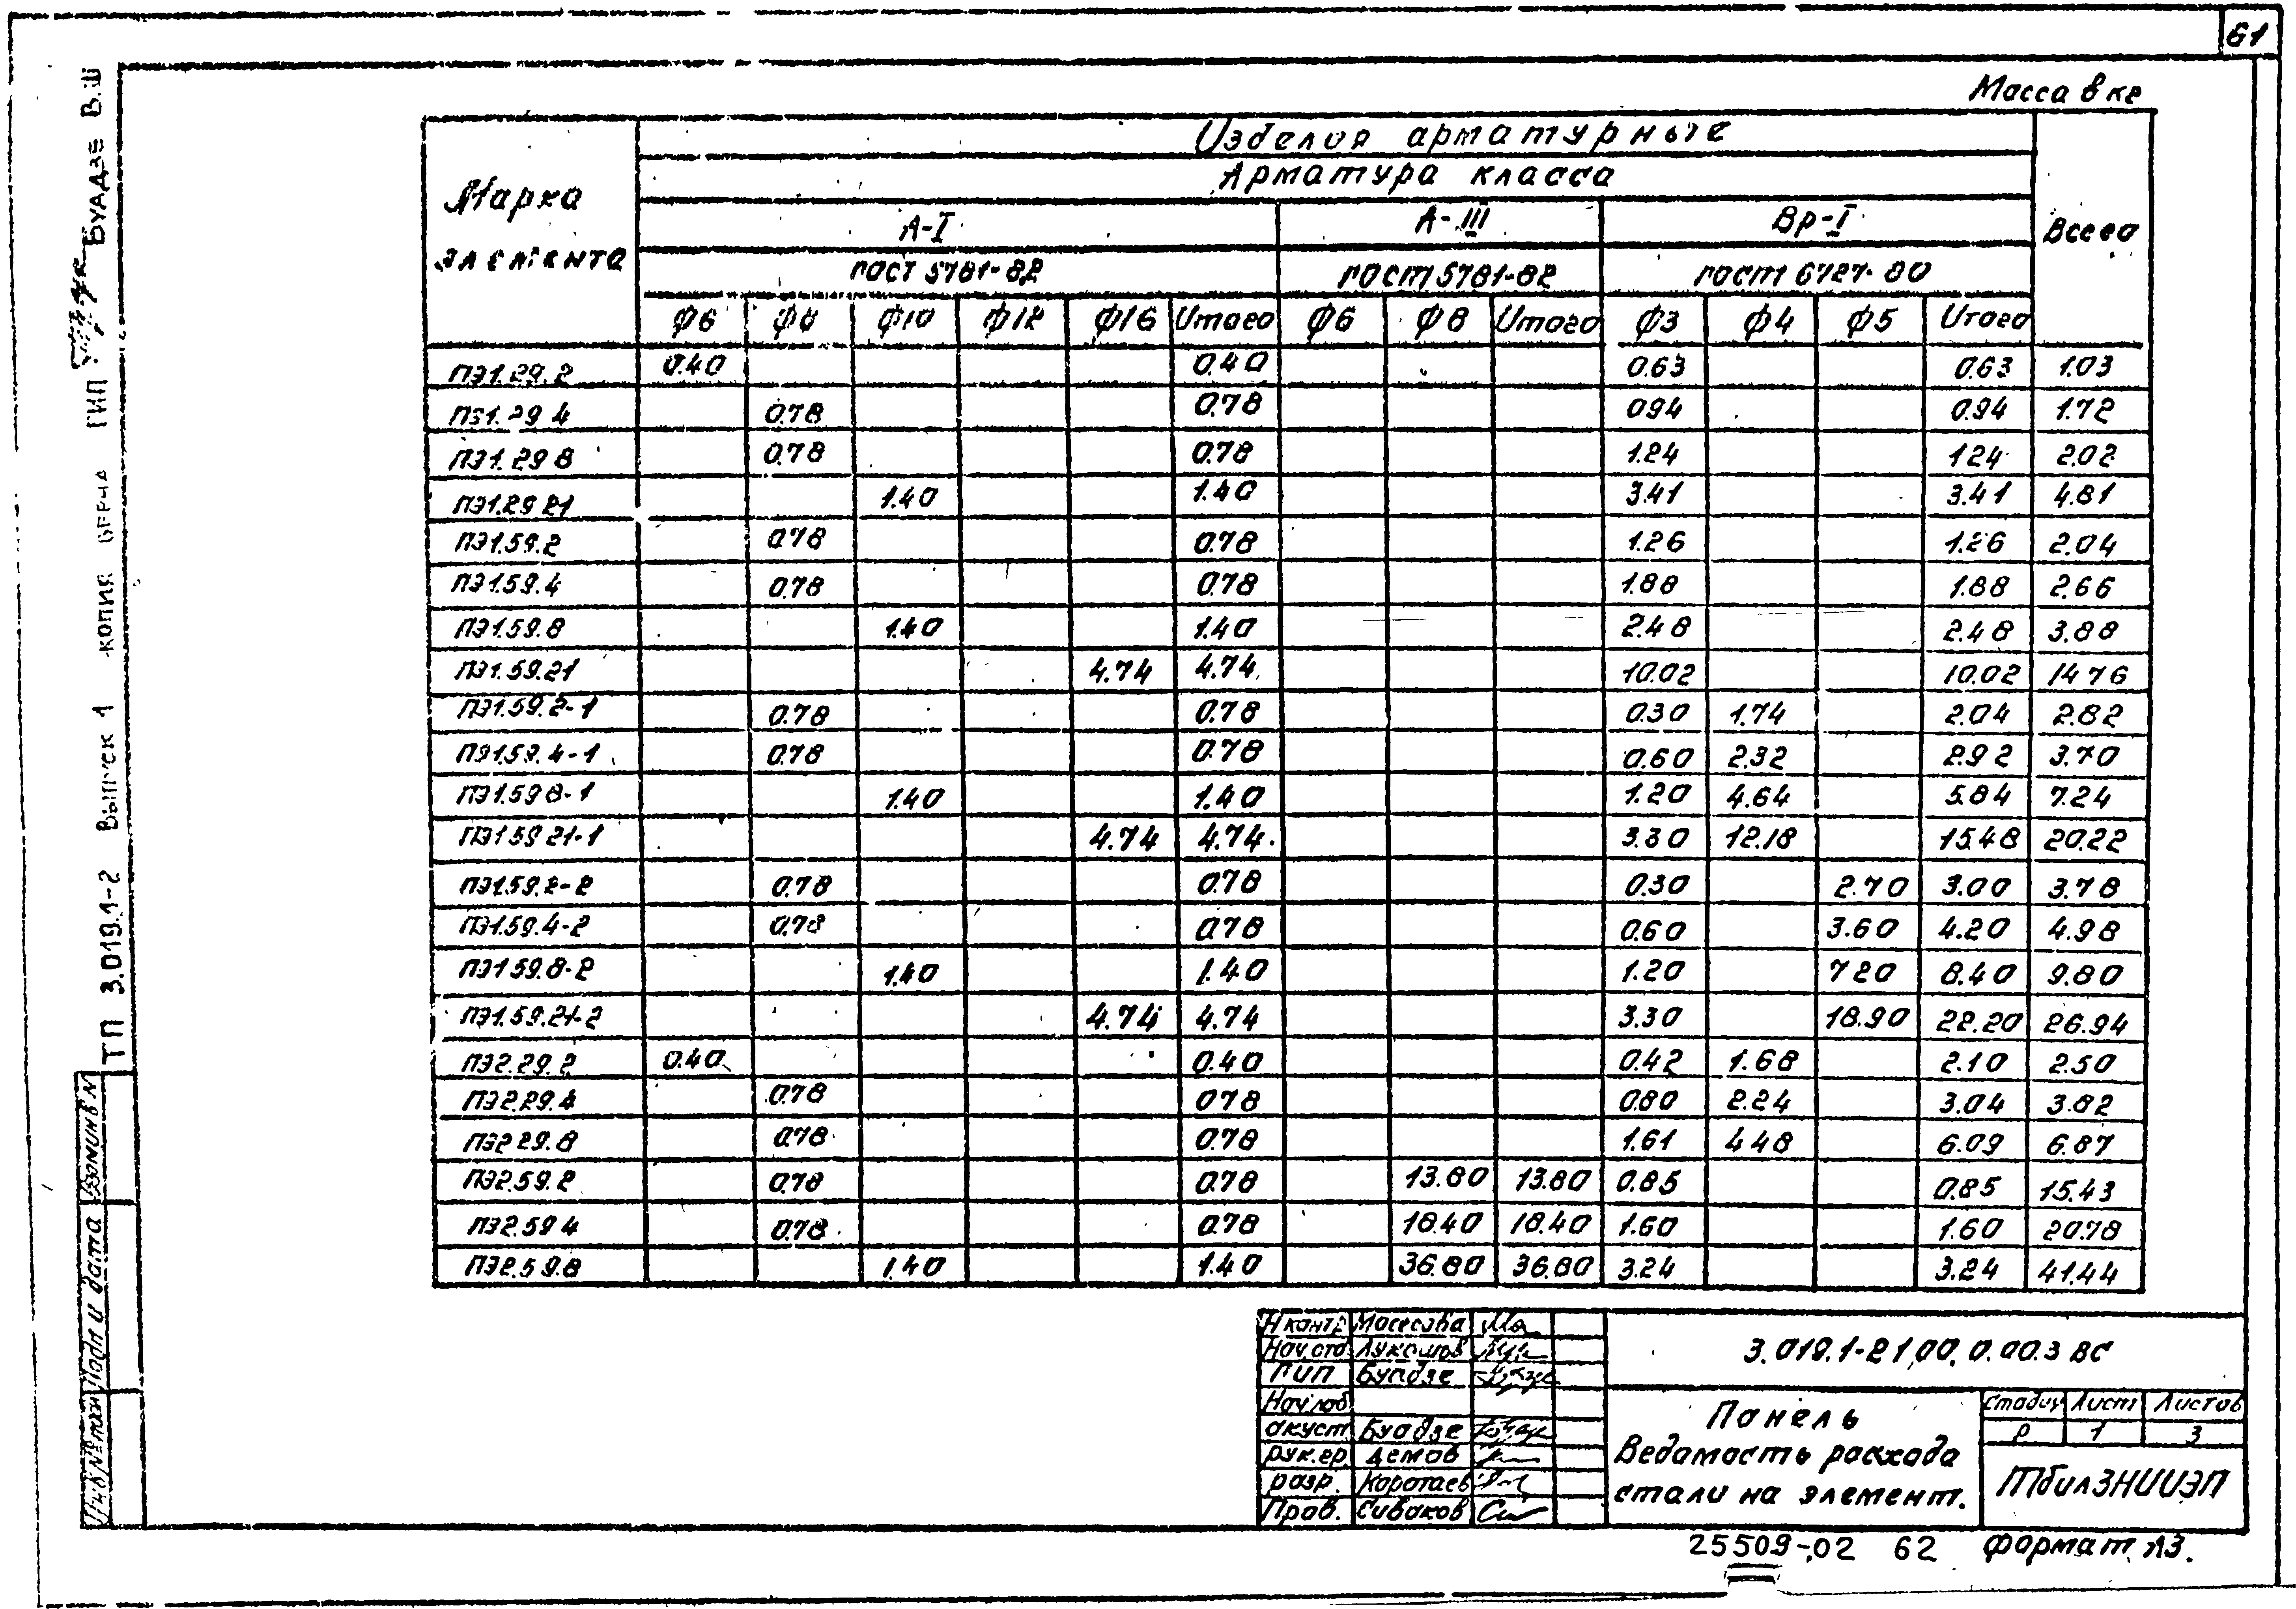 61
Масса в кг
Марка элемента
Изделия арматурные
Всего
Арматура класса
А-I А-III Вр-I
гост 5781-82 гост 5781-82 гост 6727-80
Ф6 Ф8 Ф10 Ф12 Ф16 Итого Ф6 Ф8 Итого Ф3 Ф4 Ф5 Итого
ПЭ1.29.2 0.40 0.40 0.63 0.63 1.03
ПЭ1.29 4 0.78 0.78 0.94 0.94 1.72
ПЭ1.29 8 0.78 0.78 1.24 1.24 2.02
ПЭ1.29 21 1.40 1.40 3.41 3.41 4.81
ПЭ1.59.2 0.78 0.78 1.26 1.26 2.04
ПЭ1.59.4 0.78 0.78 1.88 1.88 2.66
ПЭ1.59.8 1.40 1.40 2.48 2.48 3.88
ПЭ1.59.21 4.74 4.74 10.02 10.02 14 76
ПЭ1.59.2-1 0.78 0.78 0.30 1.74 2.04 2.82
ПЭ1.59.4-1 0.78 0.78 0.60 2.32 2.92 3.70
ПЭ1.59 8-1 1.40 1.40 1.20 4.64 5.84 7.24
ПЭ1 59 21-1 4.74 4.74 3.30 12.18 15.48 20.22
ПЭ1.59.2-2 0.78 0.78 0.30 2.70 3.00 3.78
ПЭ1.59.4-2 0.78 0.78 0.60 3.60 4.20 4.98
ПЭ1 59.8-2 1.40 1.40 1.20 7 20 8.40 9.80
ПЭ1.59.21-2 4.74 4.74 3.30 18.90 22.20 26.94
ПЭ2.29.2 0.40 0.40 0.42 1.68 2.10 2.50
ПЭ2.29.4 0.78 0.78 0.80 2.24 3.04 3.82
ПЭ2 29.8 0.78 0.78 1.61 4 48 6.09 6.87
ПЭ2.59.2 0.78 0.78 13.80 13.80 0.85 0.85 15.43
ПЭ2.59 4 0.78 0.78 18.40 18.40 1.60 1.60 20.78
ПЭ2.59.8 1.40 1.40 36.80 36.80 3.24 3.24 41.44
Н контр
Нач.отд Лукашов
ГИП Буадзе
Нач лаб
акуст Буадзе
рук.гр. Демов
разр. Коротаев
Пров. Сиваков
3.019.1-2 1.00.0.00.3 ВС
Панель
Ведомость расхода
стали на элемент.
Стадия Лист Листов
Р 1 3
ТбилЗНИИЭП
25509-02 62 формат А3.
ТП 3.019.1-2 Выпуск 1 -копия верна ГИП БУАДЗЕ В.Ш
Взам инв N
Подп и дата
Инв N подл